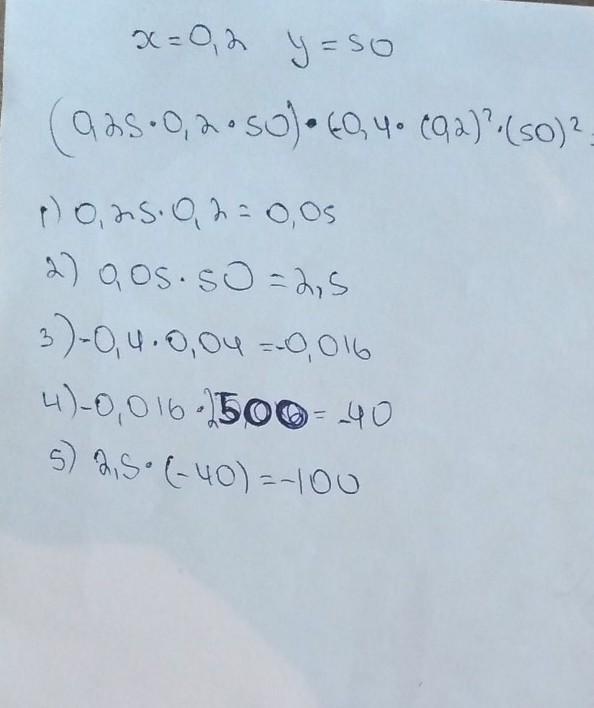 x=0,2 y=50
(0,25·0,2·50)·(-0,4·(0,2)²·(50)²=
1) 0,25·0,2=0,05
2) 0,05·50=2,5
3) -0,4·0,04=-0,016
4) -0,016·2500=-40
5) 2,5·(-40)=-100